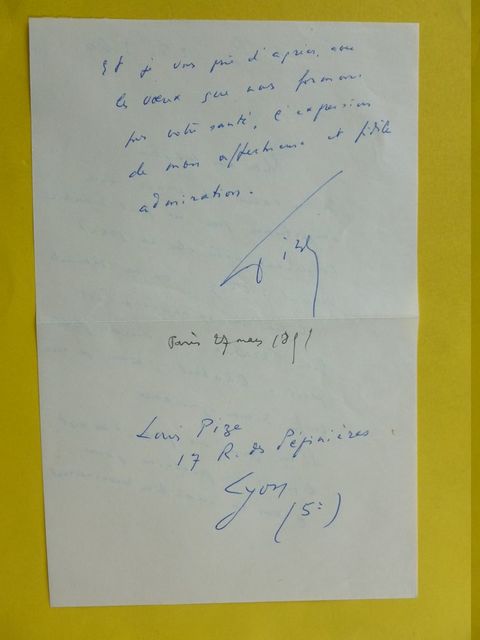 Et je vous prie d'agréer, avec
les vœux que nous formons
pour votre santé, l'expression
de mon affectueuse et fidèle
admiration.
Pize
Paris 27 mars
Louis Pize
17 R. des Pépinières
Lyon
(5e)